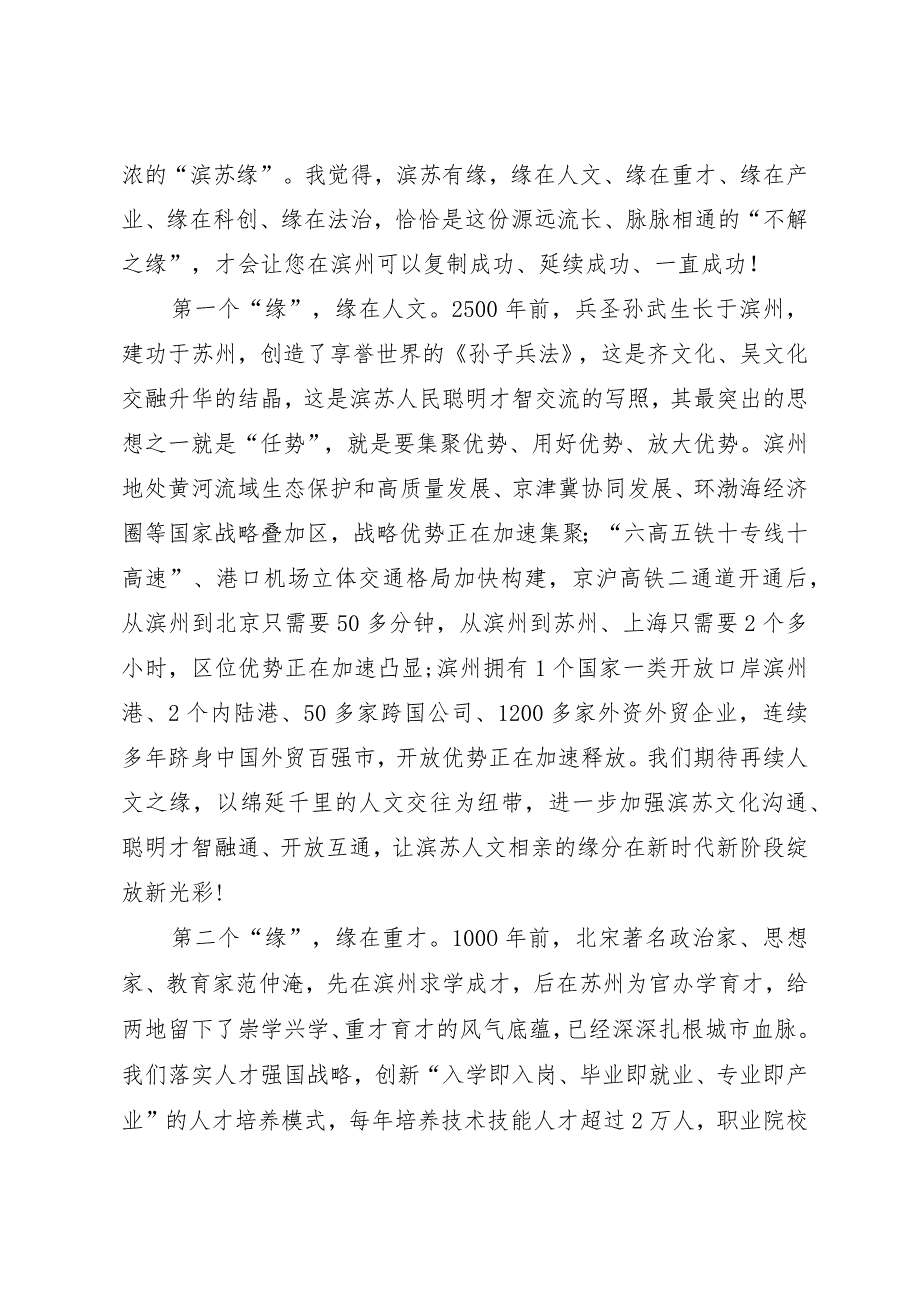 浓的“滨苏缘”。我觉得，滨苏有缘，缘在人文、缘在重才、缘在产
业、缘在科创、缘在法治，恰恰是这份源远流长、脉脉相通的“不解
之缘”，才会让您在滨州可以复制成功、延续成功、一直成功！
第一个“缘”，缘在人文。2500 年前，兵圣孙武生长于滨州，
建功于苏州，创造了享誉世界的《孙子兵法》，这是齐文化、吴文化
交融升华的结晶，这是滨苏人民聪明才智交流的写照，其最突出的思
想之一就是“任势”，就是要集聚优势、用好优势、放大优势。滨州
地处黄河流域生态保护和高质量发展、京津冀协同发展、环渤海经济
圈等国家战略叠加区，战略优势正在加速集聚；“六高五铁十专线十
高速”、港口机场立体交通格局加快构建，京沪高铁二通道开通后，
从滨州到北京只需要 50 多分钟，从滨州到苏州、上海只需要 2 个多
小时，区位优势正在加速凸显;滨州拥有 1 个国家一类开放口岸滨州
港、2 个内陆港、50 多家跨国公司、1200 多家外资外贸企业，连续
多年跻身中国外贸百强市，开放优势正在加速释放。我们期待再续人
文之缘，以绵延千里的人文交往为纽带，进一步加强滨苏文化沟通、
聪明才智融通、开放互通，让滨苏人文相亲的缘分在新时代新阶段绽
放新光彩!
第二个“缘”，缘在重才。1000 年前，北宋著名政治家、思想
家、教育家范仲淹，先在滨州求学成才，后在苏州为官办学育才，给
两地留下了崇学兴学、重才育才的风气底蕴，已经深深扎根城市血脉。
我们落实人才强国战略，创新“入学即入岗、毕业即就业、专业即产
业”的人才培养模式，每年培养技术技能人才超过 2 万人，职业院校